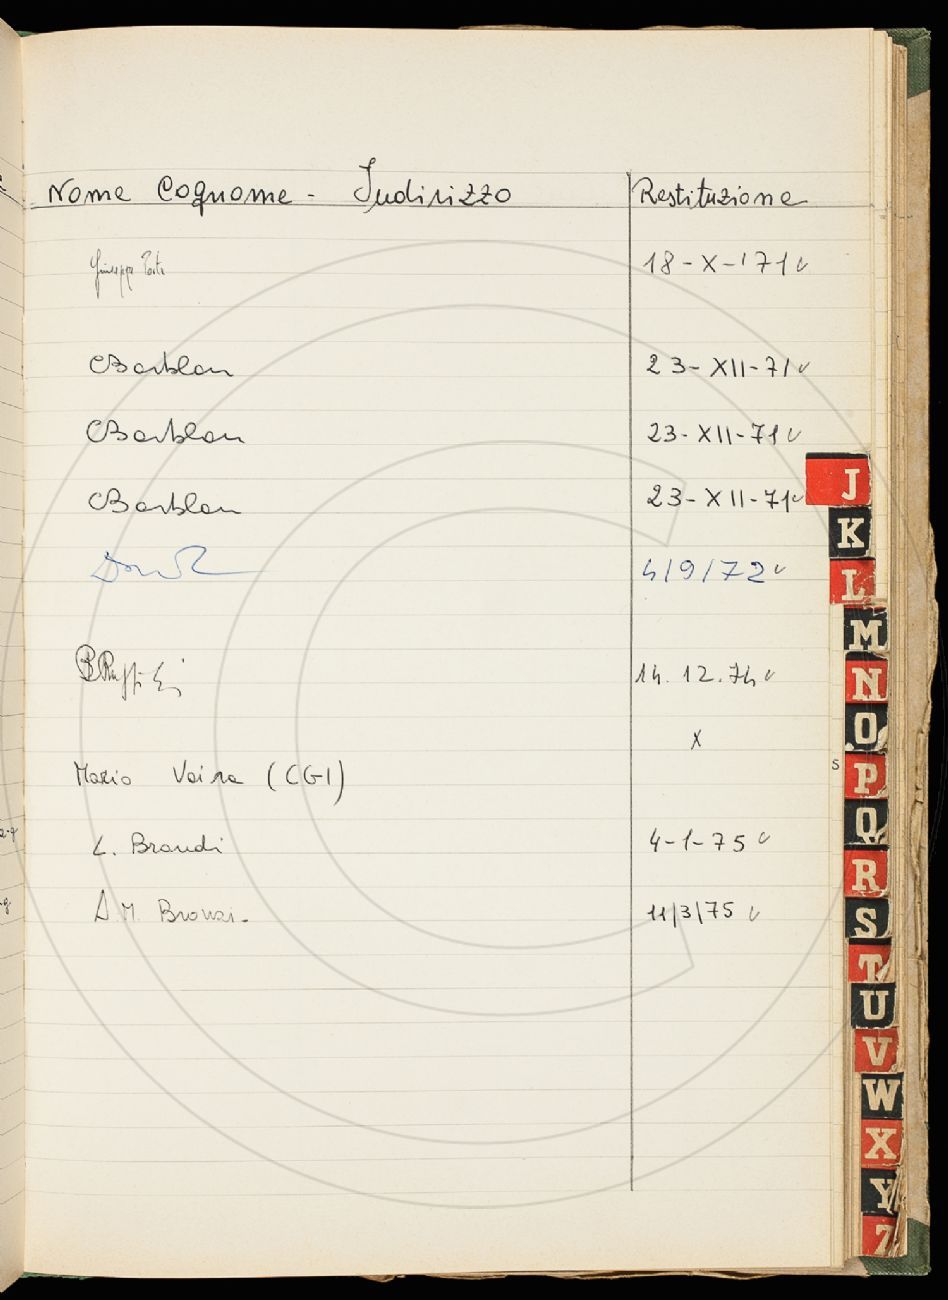 Nome Cognome - Indirizzo Restituzione
Giuseppe 18-X-'71 v
CBarblan 23-XII-71 v
CBarblan 23-XII-71 v
CBarblan 23-XII-71 v
4/9/72 v
14.12.74 v
X
Mario Vaira (CGI)
L. Brandi 4-1-75 v
A.M. Bronzi. 11/3/75 v
J
K
L
M
N
O
S
P
Q
R
S
T
U
V
W
X
Y
Z